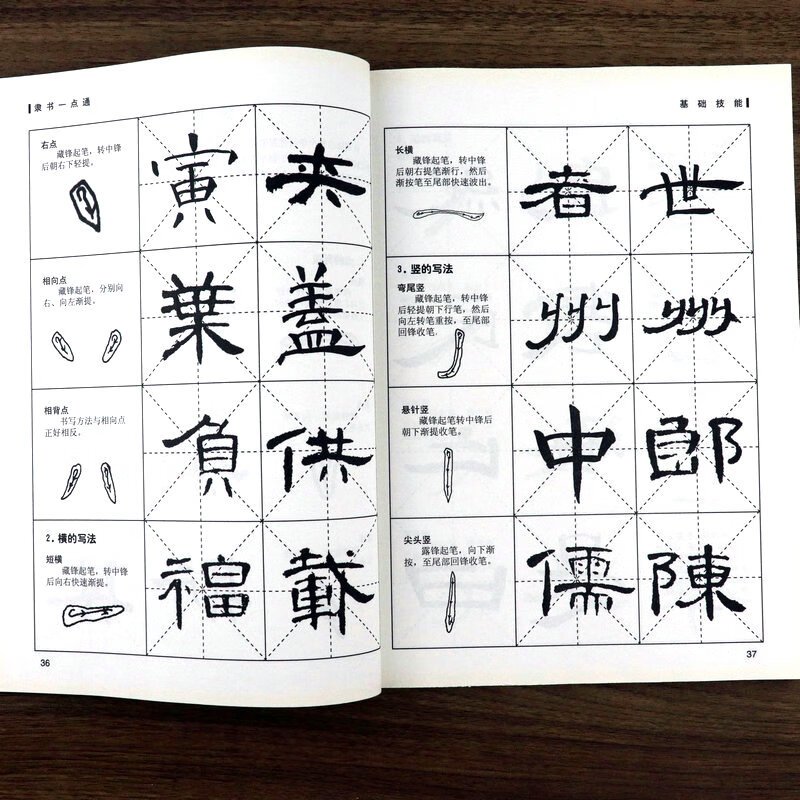 隶书一点通
右点
藏锋起笔，转中锋
后朝右下轻提。
寅 夹
相向点
藏锋起笔，分别向
右、向左渐提。
葉 蓋
相背点
书写方法与相向点
正好相反。
負 供
2. 横的写法
短横
藏锋起笔，转中锋
后向右快速渐提。
福 載
36
基础技能
长横
藏锋起笔，转中锋
后朝右提笔渐行，然后
渐按笔至尾部快速波出。
者 世
3. 竖的写法
弯尾竖
藏锋起笔，转中锋
后轻提朝下行笔，然后
向左转笔重按，至尾部
回锋收笔。
州 州
悬针竖
藏锋起笔转中锋后
朝下渐提收笔。
中 郎
尖头竖
露锋起笔，向下渐
按，至尾部回锋收笔。
儒 陳
37